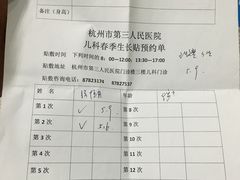 备注（身高）
杭州市第三人民医院
儿科春季生长贴预约单
贴敷时间 下列时间的8：00—12:00；13:30—17:00
贴敷地址 杭州市第三人民医院门诊楼三楼儿科门诊
5.9
贴敷咨询电话：87823174 87827537
姓名 年龄
第1次 ✓ 5.9 第8次
第2次 ✓ 第9次
第3次 第10次
第4次 第11次
第5次 第12次